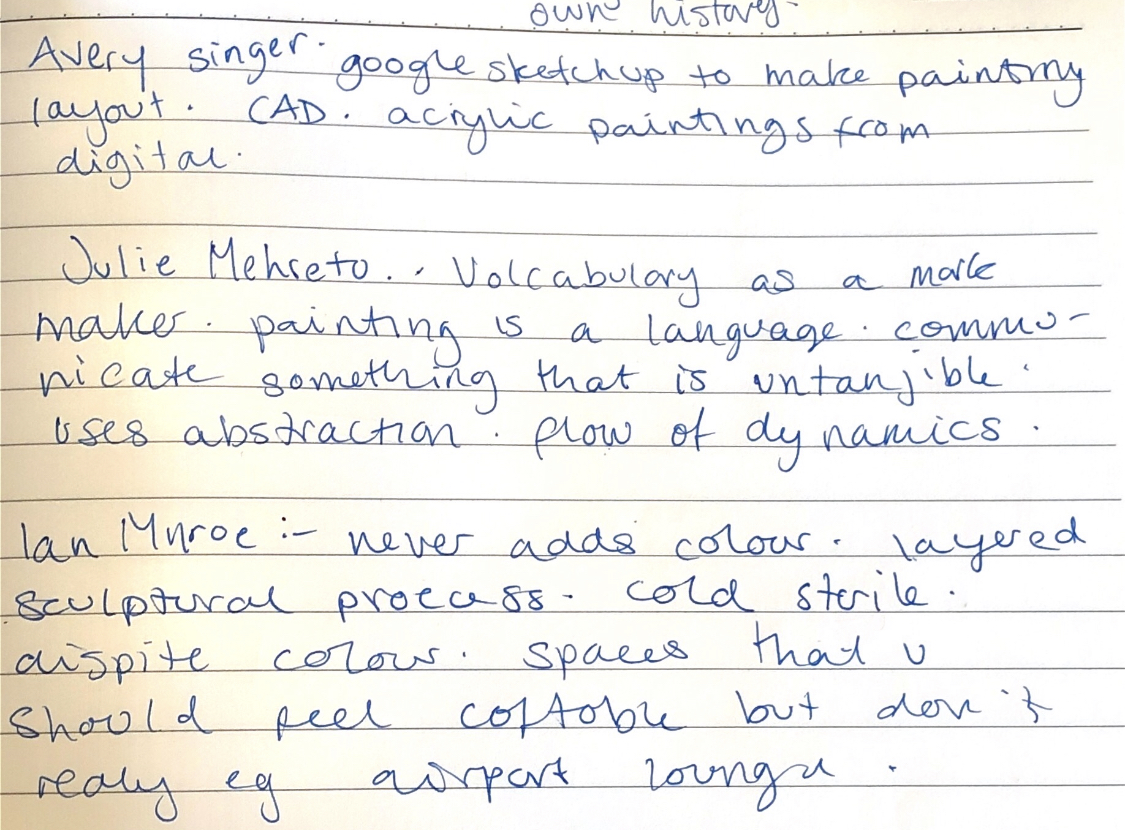 own history.
Avery singer. google sketchup to make painting
layout. CAD. acrylic paintings from
digital.
Julie Mehreto.. Volcabulary as a mark
maker. painting is a language. commu-
nicate something that is untanjible.
uses abstraction. flow of dynamics.
Ian Mnroe :- never adds colour. layered
sculptural procass. cold sterile.
dispite colour. spaces that u
should feel coftoble but don't
realy eg airport lounge.